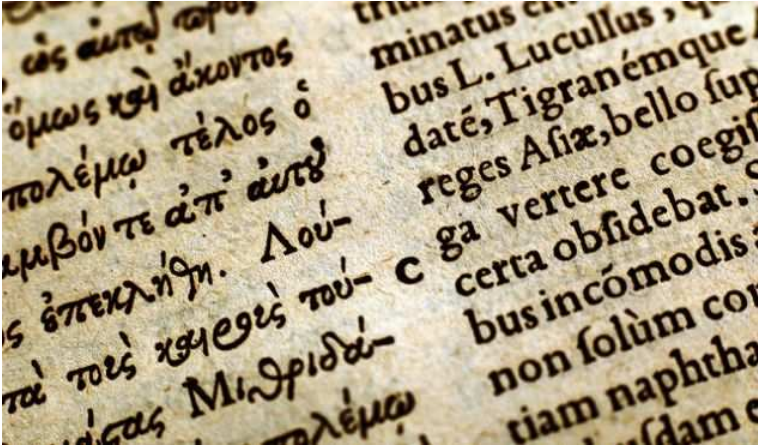 ὡς
ὅμως καὶ ἄκοντος
πολέμῳ τέλος ὁ
αμβόν τε ἀπ' αὐτοῦ
ς ἐπεκλήθη. Λού-
τὰ τοὺς καιροὺς τού-
Μιθριδά-
πολέμῳ
C
minatus
bus L. Lucullus,
daté, Tigranémque
reges Aſiæ, bello ſup
ga vertere coegiſ
certa obſidebat.
bus incõmodis
non ſolùm con
tiam naphtha
ſdam e